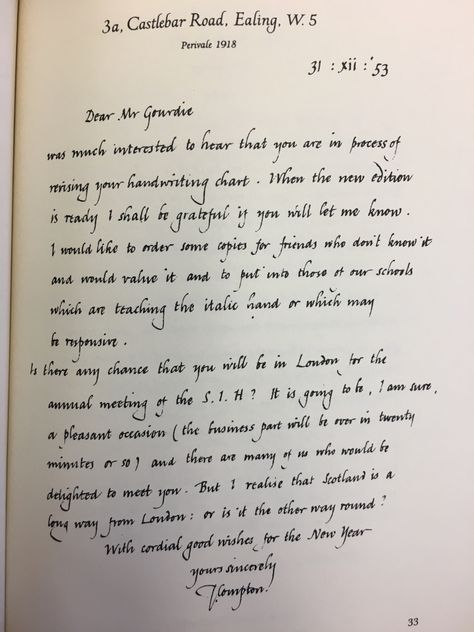 3a, Castlebar Road, Ealing, W. 5
Perivale 1918
31 : xii : '53
Dear Mr Gourdie
was much interested to hear that you are in process of
revising your handwriting chart. When the new edition
is ready I shall be grateful if you will let me know.
I would like to order some copies for friends who don't know it
and would value it and to put into those of our schools
which are teaching the italic hand or which may
be responsive.
Is there any chance that you will be in London for the
annual meeting of the S. I. H? It is going to be, I am sure,
a pleasant occasion (the business part will be over in twenty
minutes or so) and there are many of us who would be
delighted to meet you. But I realise that Scotland is a
long way from London: or is it the other way round?
With cordial good wishes for the New Year
yours sincerely
J. Compton.
33